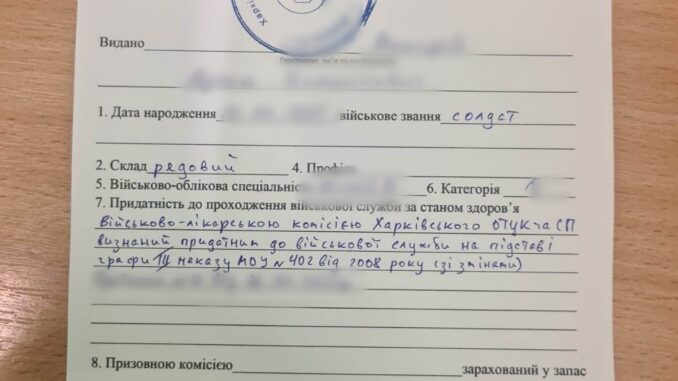 Харкі
Видано
1. Дата народження військове звання солдат
2. Склад рядовий 4. Профіль
5. Військово-облікова спеціальність 6. Категорія
7. Придатність до проходження військової служби за станом здоров’я
Військово-лікарською комісією Харківського ОТЦК та СП
визнаний придатним до військової служби на підставі
графи III наказу МОУ № 402 від 2008 року (зі змінами)
8. Призовною комісією зарахований у запас